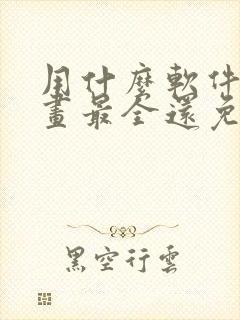 用什麼軟件
畫最全還免
黑空行雲